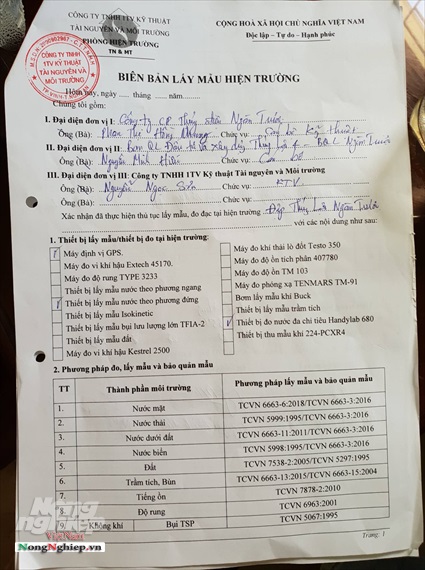 CÔNG TY TNHH 1TV KỸ THUẬT
TÀI NGUYÊN VÀ MÔI TRƯỜNG
PHÒNG HIỆN TRƯỜNG
TN & MT
CỘNG HOÀ XÃ HỘI CHỦ NGHĨA VIỆT NAM
Độc lập - Tự do - Hạnh phúc
CÔNG TY TNHH
1TV KỸ THUẬT
TÀI NGUYÊN VÀ
MÔI TRƯỜNG
BIÊN BẢN LẤY MẪU HIỆN TRƯỜNG
Hôm nay, ngày ..... tháng ..... năm..........
Chúng tôi gồm:
I. Đại diện đơn vị I: Công ty CP Thủy sản Ngàn Trươi
Ông (Bà): Phan Thị Hồng Chức vụ: Cán bộ kỹ thuật
II. Đại diện đơn vị II: Ban QL Đầu tư và xây dựng Thủy Lợi 4 - Ngàn Trươi
Ông (Bà): Nguyễn Minh Chức vụ: Cán bộ
III. Đại diện đơn vị III: Công ty TNHH 1TV Kỹ thuật Tài nguyên và Môi trường
Ông (Bà): Nguyễn Ngọc Sơn Chức vụ: KTV
Xác nhận đã thực hiện thủ tục lấy mẫu, đo đạc tại hiện trường Đập Thủy Lợi Ngàn Trươi
với các nội dung như sau:
1. Thiết bị lấy mẫu/thiết bị đo tại hiện trường:
Máy định vị GPS.
Máy đo vi khí hậu Extech 45170.
Máy đo độ rung TYPE 3233
Thiết bị lấy mẫu nước theo phương ngang
Thiết bị lấy mẫu nước theo phương đứng
Thiết bị lấy mẫu Isokinetic
Thiết bị lấy mẫu bụi lưu lượng lớn TFIA-2
Thiết bị lấy mẫu đất
Máy đo vi khí hậu Kestrel 2500
Máy đo khí thải lò đốt Testo 350
Máy đo độ ồn tích phân 407780
Máy đo độ ồn TM 103
Máy đo phóng xạ TENMARS TM-91
Bơm lấy mẫu khí Buck
Thiết bị lấy mẫu trầm tích
Thiết bị đo nước đa chỉ tiêu Handylab 680
Thiết bị thu mẫu khí 224-PCXR4
2. Phương pháp đo, lấy mẫu và bảo quản mẫu:
TT Thành phần môi trường Phương pháp lấy mẫu và bảo quản mẫu
1. Nước mặt TCVN 6663-6:2018/TCVN 6663-3:2016
2. Nước thải TCVN 5999:1995/TCVN 6663-3:2016
3. Nước dưới đất TCVN 6663-11:2011/TCVN 6663-3:2016
4. Nước biển TCVN 5998:1995/TCVN 6663-3:2016
5. Đất TCVN 7538-2:2005/TCVN 5297:1995
6. Trầm tích, Bùn TCVN 6663-13:2015/TCVN 6663-15:2004
7. Tiếng ồn TCVN 7878-2:2010
8. Độ rung TCVN 6963:2001
9. Không khí Bụi TSP TCVN 5067:1995
Trang: 1
Nông
nghiệp
Việt Nam
NongNghiep.vn